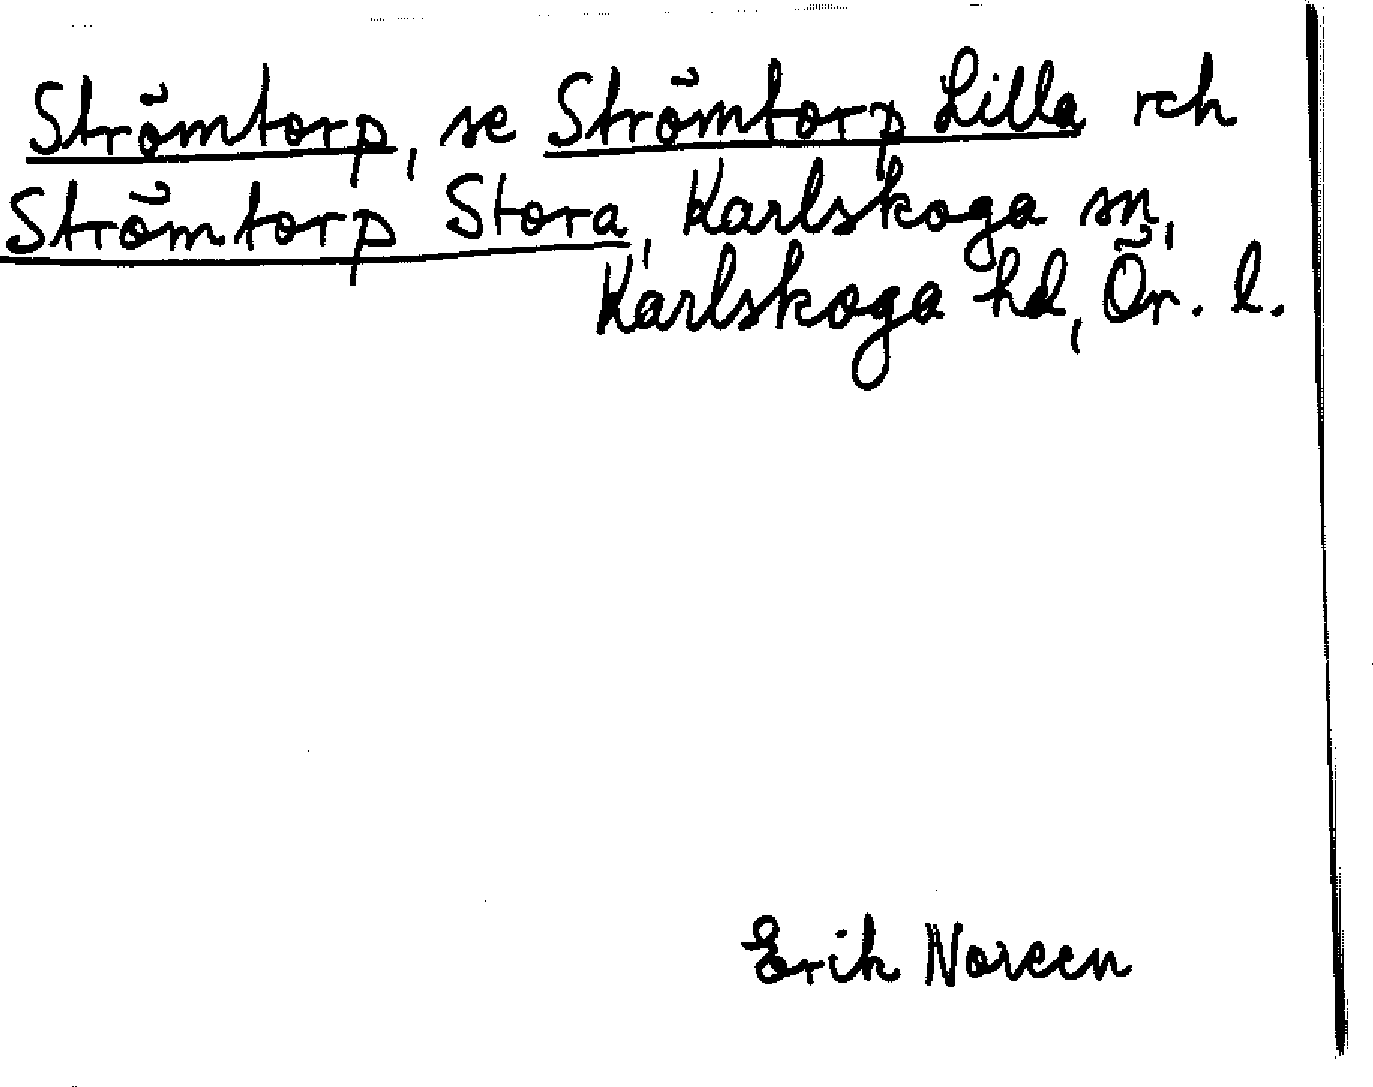 Strömtorp, se Strömtorp Lilla och
Strömtorp Stora, Karlskoga sn,
Karlskoga hd, Ör. l.
Erik Noreen